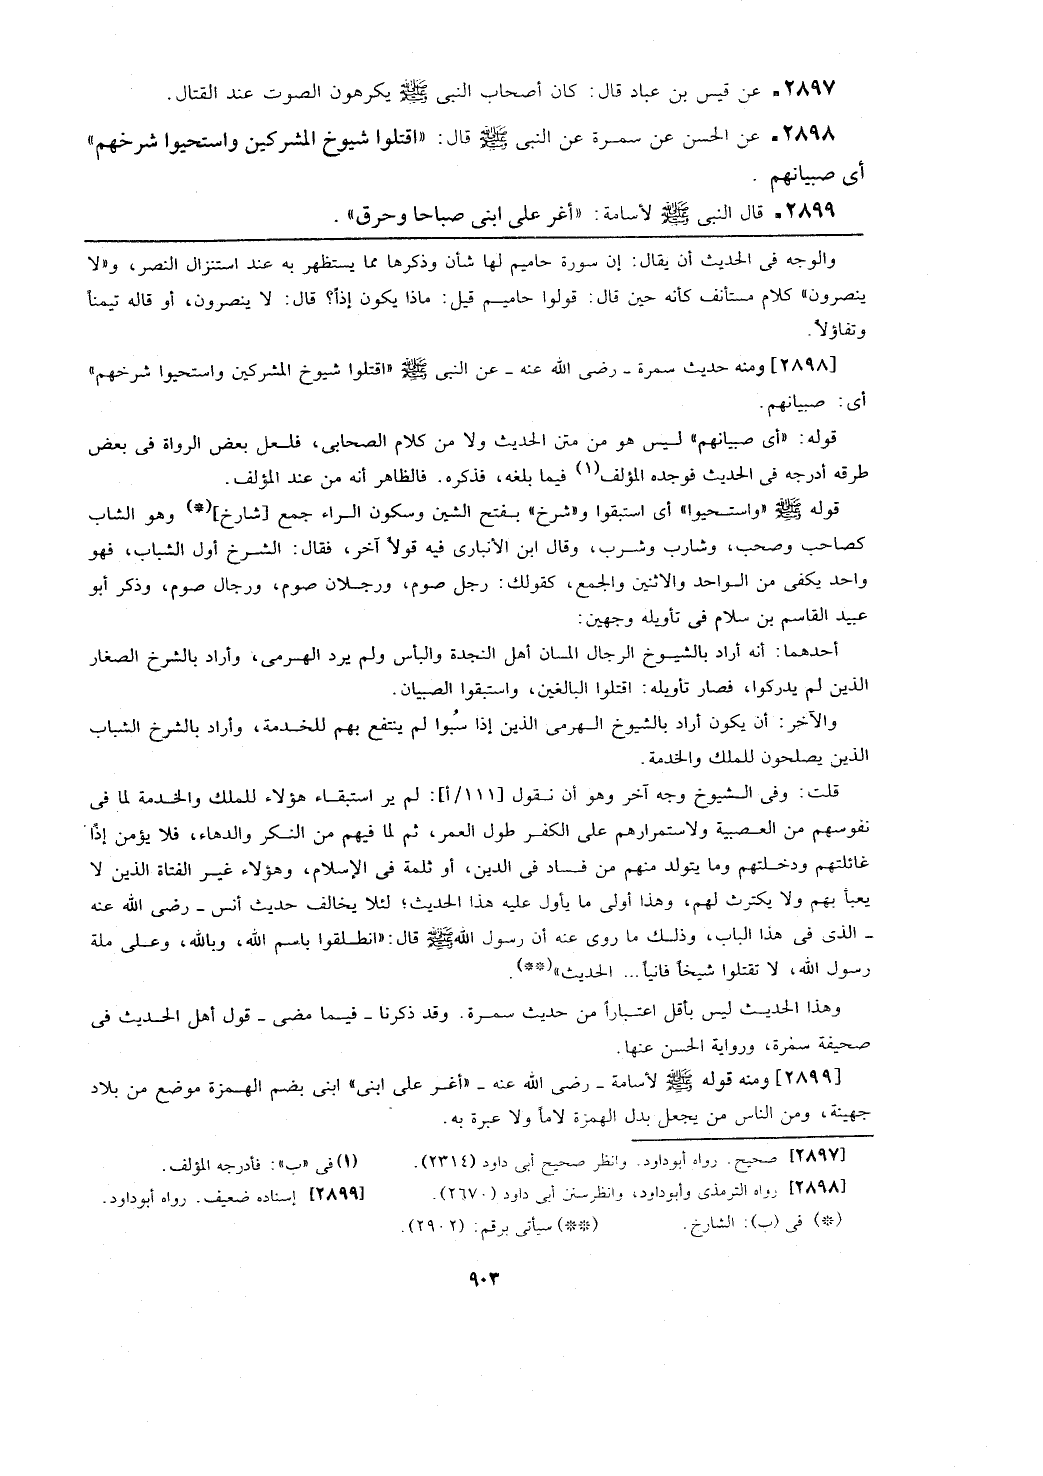 ٢٨٩٧ـ عن قيس بن عباد قال: كان أصحاب النبى ﷺ يكرهون الصوت عند القتال.
٢٨٩٨ـ عن الحسن عن سمرة عن النبى ﷺ قال: «اقتلوا شيوخ المشركين واستحيوا شرخهم»
أى صبيانهم .
٢٨٩٩ـ قال النبى ﷺ لأسامة: «أغر على ابنى صباحا وحرق» .
والوجه فى الحديث أن يقال: إن سورة حاميم لها شأن وذكرها مما يستظهر به عند استنزال النصر، و«لا
ينصرون» كلام مستأنف كأنه حين قال: قولوا حاميم قيل: ماذا يكون إذاً؟ قال: لا ينصرون، أو قاله تيمناً
وتفاؤلاً.
[٢٨٩٨] ومنه حديث سمرة ـ رضى الله عنه ـ عن النبى ﷺ «اقتلوا شيوخ المشركين واستحيوا شرخهم»
أى: صبيانهم.
قوله: «أى صبيانهم» ليس هو من متن الحديث ولا من كلام الصحابى، فلعل بعض الرواة فى بعض
طرقه أدرجه فى الحديث فوجده المؤلف(١) فيما بلغه، فذكره. فالظاهر أنه من عند المؤلف.
قوله ﷺ «واستحيوا» أى استبقوا و«شرخ» بفتح الشين وسكون الراء جمع [شارخ](*) وهو الشاب
كصاحب وصحب، وشارب وشرب، وقال ابن الأنبارى فيه قولاً آخر، فقال: الشرخ أول الشباب، فهو
واحد يكفى من الواحد والاثنين والجمع، كقولك: رجل صوم، ورجلان صوم، ورجال صوم، وذكر أبو
عبيد القاسم بن سلام فى تأويله وجهين:
أحدهما: أنه أراد بالشيوخ الرجال المسان أهل النجدة والبأس ولم يرد الهرمى، وأراد بالشرخ الصغار
الذين لم يدركوا، فصار تأويله: اقتلوا البالغين، واستبقوا الصبيان.
والآخر: أن يكون أراد بالشيوخ الهرمى الذين إذا سُبوا لم ينتفع بهم للخدمة، وأراد بالشرخ الشباب
الذين يصلحون للملك والخدمة.
قلت: وفى الشيوخ وجه آخر وهو أن نقول [١١١/أ]: لم ير استبقاء هؤلاء للملك والخدمة لما فى
نفوسهم من العصبية ولاستمرارهم على الكفر طول العمر، ثم لما فيهم من النكر والدهاء، فلا يؤمن إذًا
غائلتهم ودخلتهم وما يتولد منهم من فساد فى الدين، أو ثلمة فى الإسلام، وهؤلاء غير الفتاة الذين لا
يعبأ بهم ولا يكترث لهم، وهذا أولى ما يأول عليه هذا الحديث؛ لئلا يخالف حديث أنس ـ رضى الله عنه
ـ الذى فى هذا الباب، وذلك ما روى عنه أن رسول الله ﷺ قال: «انطلقوا باسم الله، وبالله، وعلى ملة
رسول الله، لا تقتلوا شيخاً فانياً... الحديث»(**).
وهذا الحديث ليس بأقل اعتباراً من حديث سمرة. وقد ذكرنا ـ فيما مضى ـ قول أهل الحديث فى
صحيفة سمُرة، ورواية الحسن عنها.
[٢٨٩٩] ومنه قوله ﷺ لأسامة ـ رضى الله عنه ـ «أغر على ابنى» ابنى بضم الهمزة موضع من بلاد
جهينة، ومن الناس من يجعل بدل الهمزة لاماً ولا عبرة به.
[٢٨٩٧] صحيح. رواه أبوداود. وانظر صحيح أبى داود (٢٣١٤). (١) فى «ب»: فأدرجه المؤلف.
[٢٨٩٨] رواه الترمذى وأبوداود، وانظرسنن أبى داود (٢٦٧٠). [٢٨٩٩] إسناده ضعيف. رواه أبوداود.
(*) فى (ب): الشارخ. (**) سيأتى برقم: (٢٩٠٢).
٩٠٣